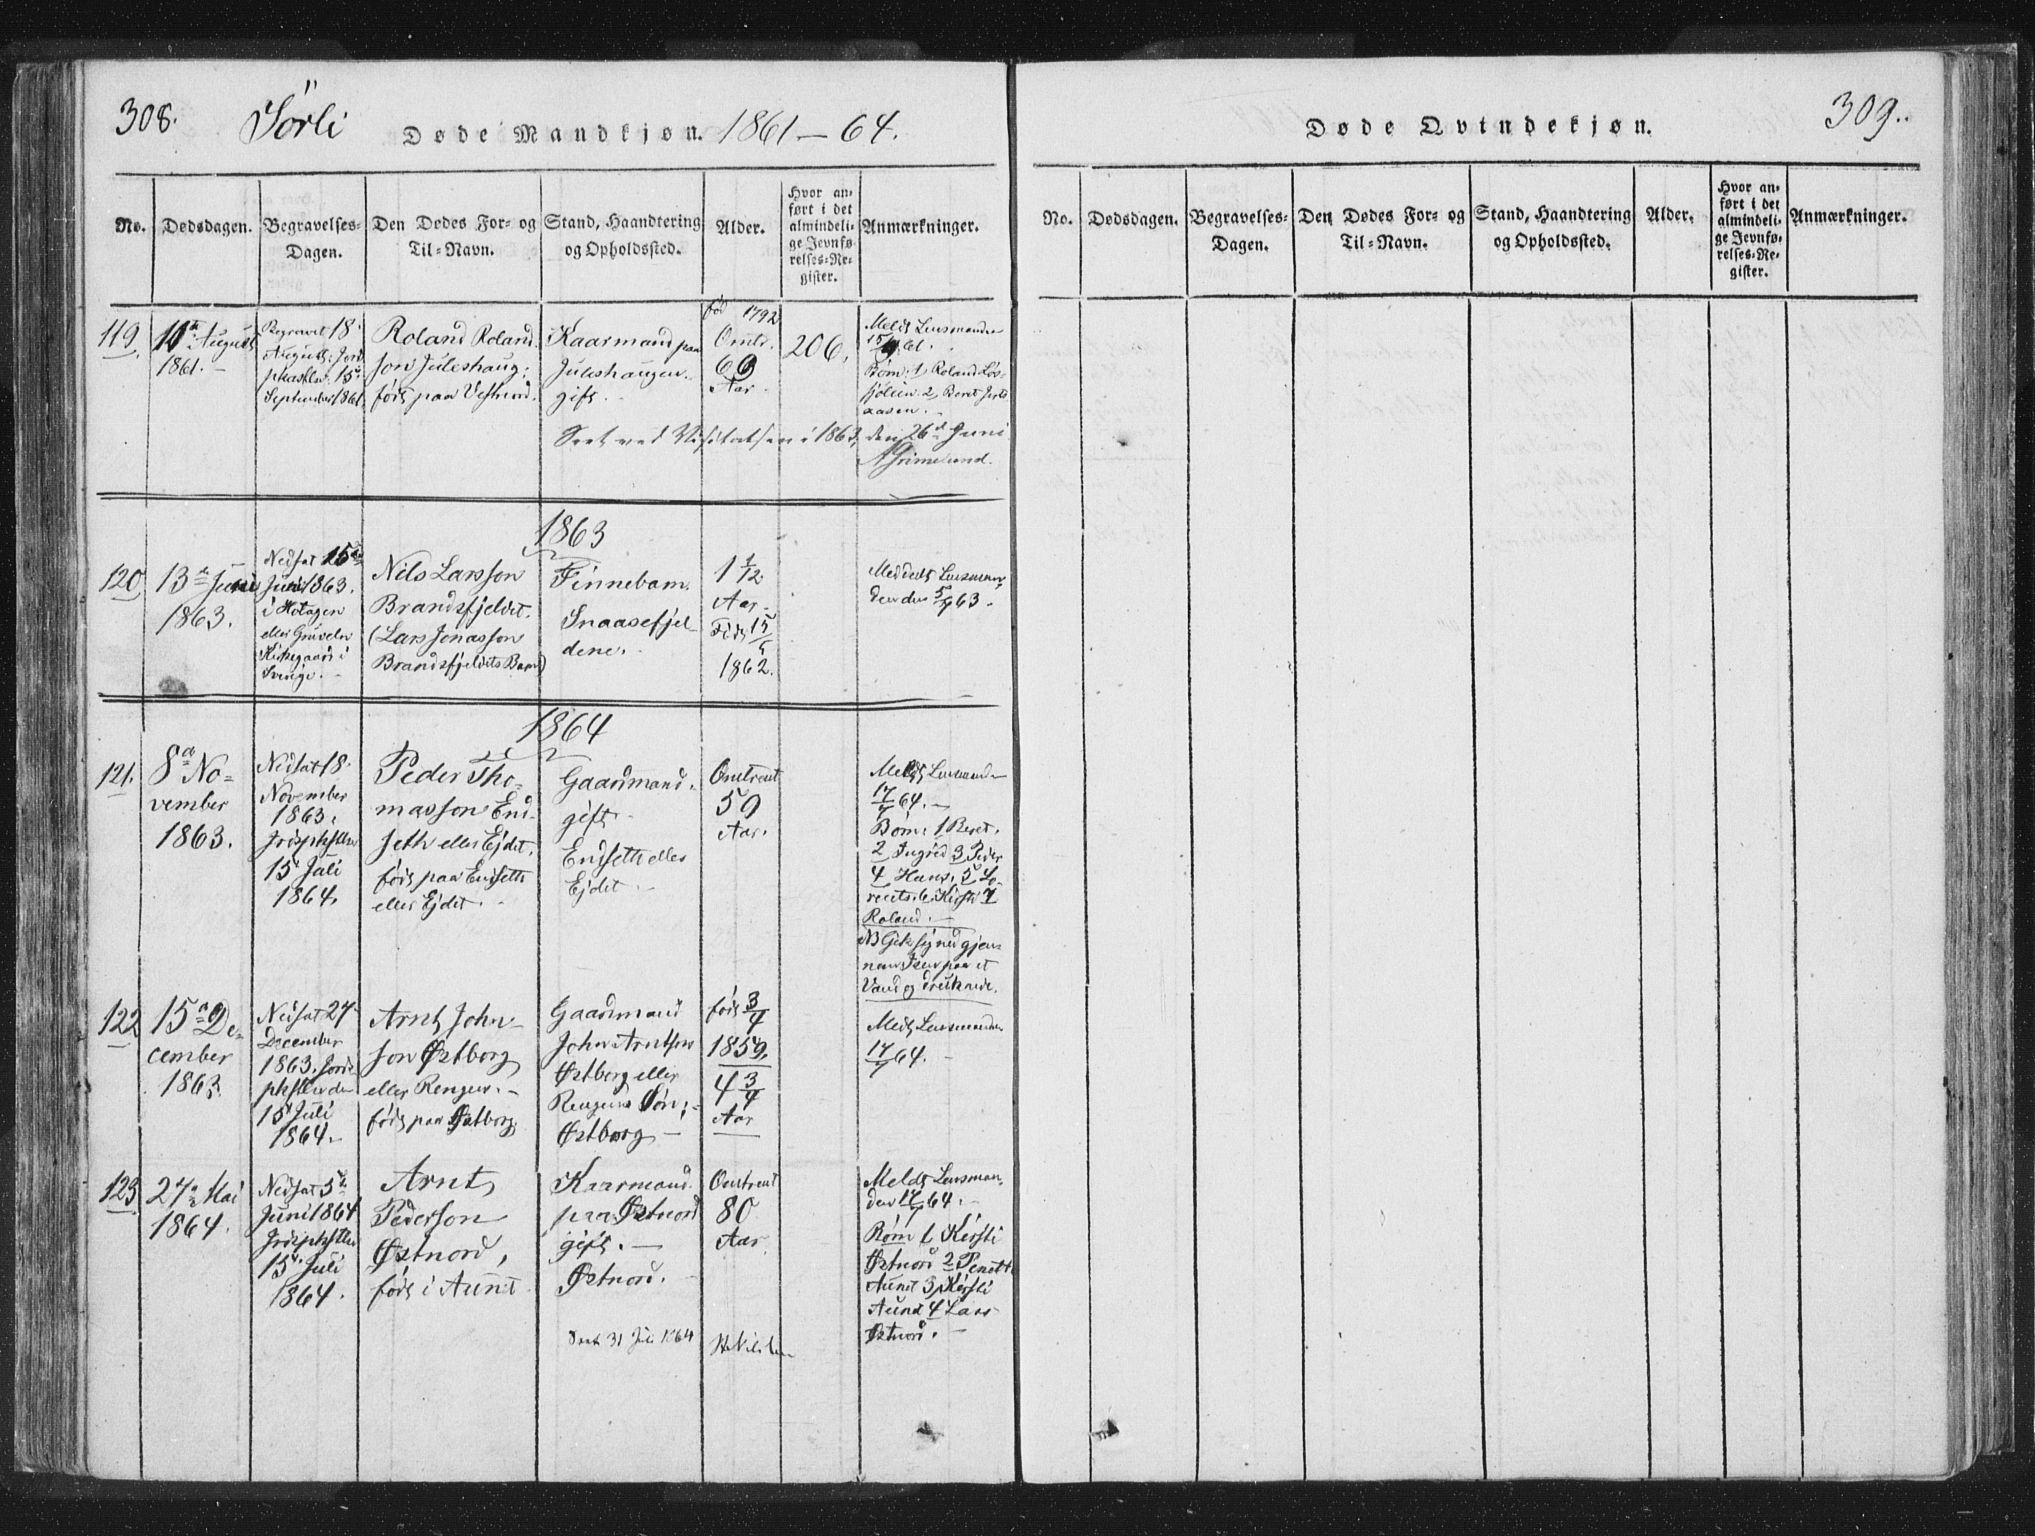 308.
Sørli
Døde Mandkjøn. 1861-64.
No.
Dødsdagen.
Begravelses-
Dagen.
Den Dødes For- og
Til-Navn.
Stand, Haandtering
og Opholdssted.
Alder.
Hvor an-
ført i det
almindeli-
ge Jevnfø-
relses-Re-
gister.
Anmærkninger.
119
August
1861.
Begravet 18
August Jord
15
September 1861
Roland Roland
son Juleshaug:
født paa Vestnord.
Kaarmand paa
Juleshaugen.
gift.
fød 1792
Omtr.
69
Aar.
206.
Meldt Lensmanden
61.
Børn: 1, Roland
2, Beret
aasen.
Seet ved Visitatsen i 1863, den 26d Juni
Grimelund.
1863
120
13de Juni
1863.
Nedsat 15de
Juni 1863.
i Hotagen
eller
Kirkegaard i
Sverige.
Nils Larsson
Brandsfjeldet.
(Lars Jonasson
Brandsfjeldets Barn)
Finnebarn.
Snaasefjel-
dene.
1 1/12
Aar.
Født 15/5
1862.
Meddelt Lensman-
den den 5/7 63.
1864
121.
8de No-
vember
1863.
Nedsat 18
November
1863.
15 Juli
1864.
Peder Tho-
masson End-
seth eller Ejdet.
født paa Endseth
eller Ejdet.
Gaardmand.
gift.
Endseth eller
Ejdet.
Omtrent
59
Aar.
Meldt Lensmanden
17/7 64.
Børn: 1 Beret,
2 Ingred 3 Peder
4 Hans, 5
6 Kirsti 7
Roland.
NB Gik gjen-
nem Isen paa et
Vand og druknede.
122
15de De-
cember
1863.
Nedsat 27
December
1863. Jords
den
15 Juli
1864.
Arnt John-
son Østborg
eller Rengen.
født paa Østborg.
Gaardmand
John Arntsen
Østborg eller
Rengens Søn;
Østborg
født 3/4
1859.
4 3/4
Aar
Meldt Lensmanden
17/7 64.
123
27de Mai
1864.
Nedsat 5te
Juni 1864
15 Juli
1864.
Arnt
Pederson
Østnord,
født i Aunet
Kaarmand
paa Østnord
gift.
Østnord.
Omtrent
80
Aar.
Meldt Lensman-
den 17/7 64.
Børn 1 Kirsti
Østnord 2
Aunet 3, Kirsti
Aunet 4 Lars
Østnord.
31 Juli 1864
309.
Døde Qvindekjøn.
No.
Dødsdagen.
Begravelses-
Dagen.
Den Dødes For- og
Til-Navn.
Stand, Haandtering
og Opholdssted.
Alder.
Hvor an-
ført i det
almindeli-
ge Jevnfø-
relses-Re-
gister.
Anmærkninger.